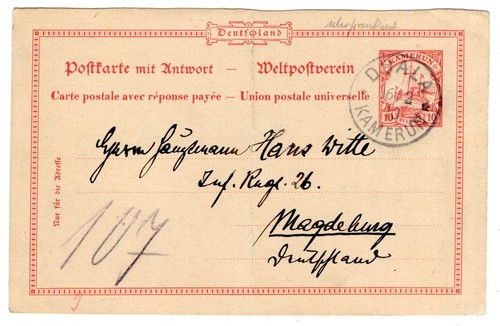 Deutschland
Postkarte mit Antwort — Weltpostverein
Carte postale avec réponse payée. — Union postale universelle
KAMERUN
10 10
DUALA
KAMERUN
Nur für die Adresse
Herrn Hauptmann Hans Witte
Inf. Regt. 26.
Magdeburg
Deutschland
107